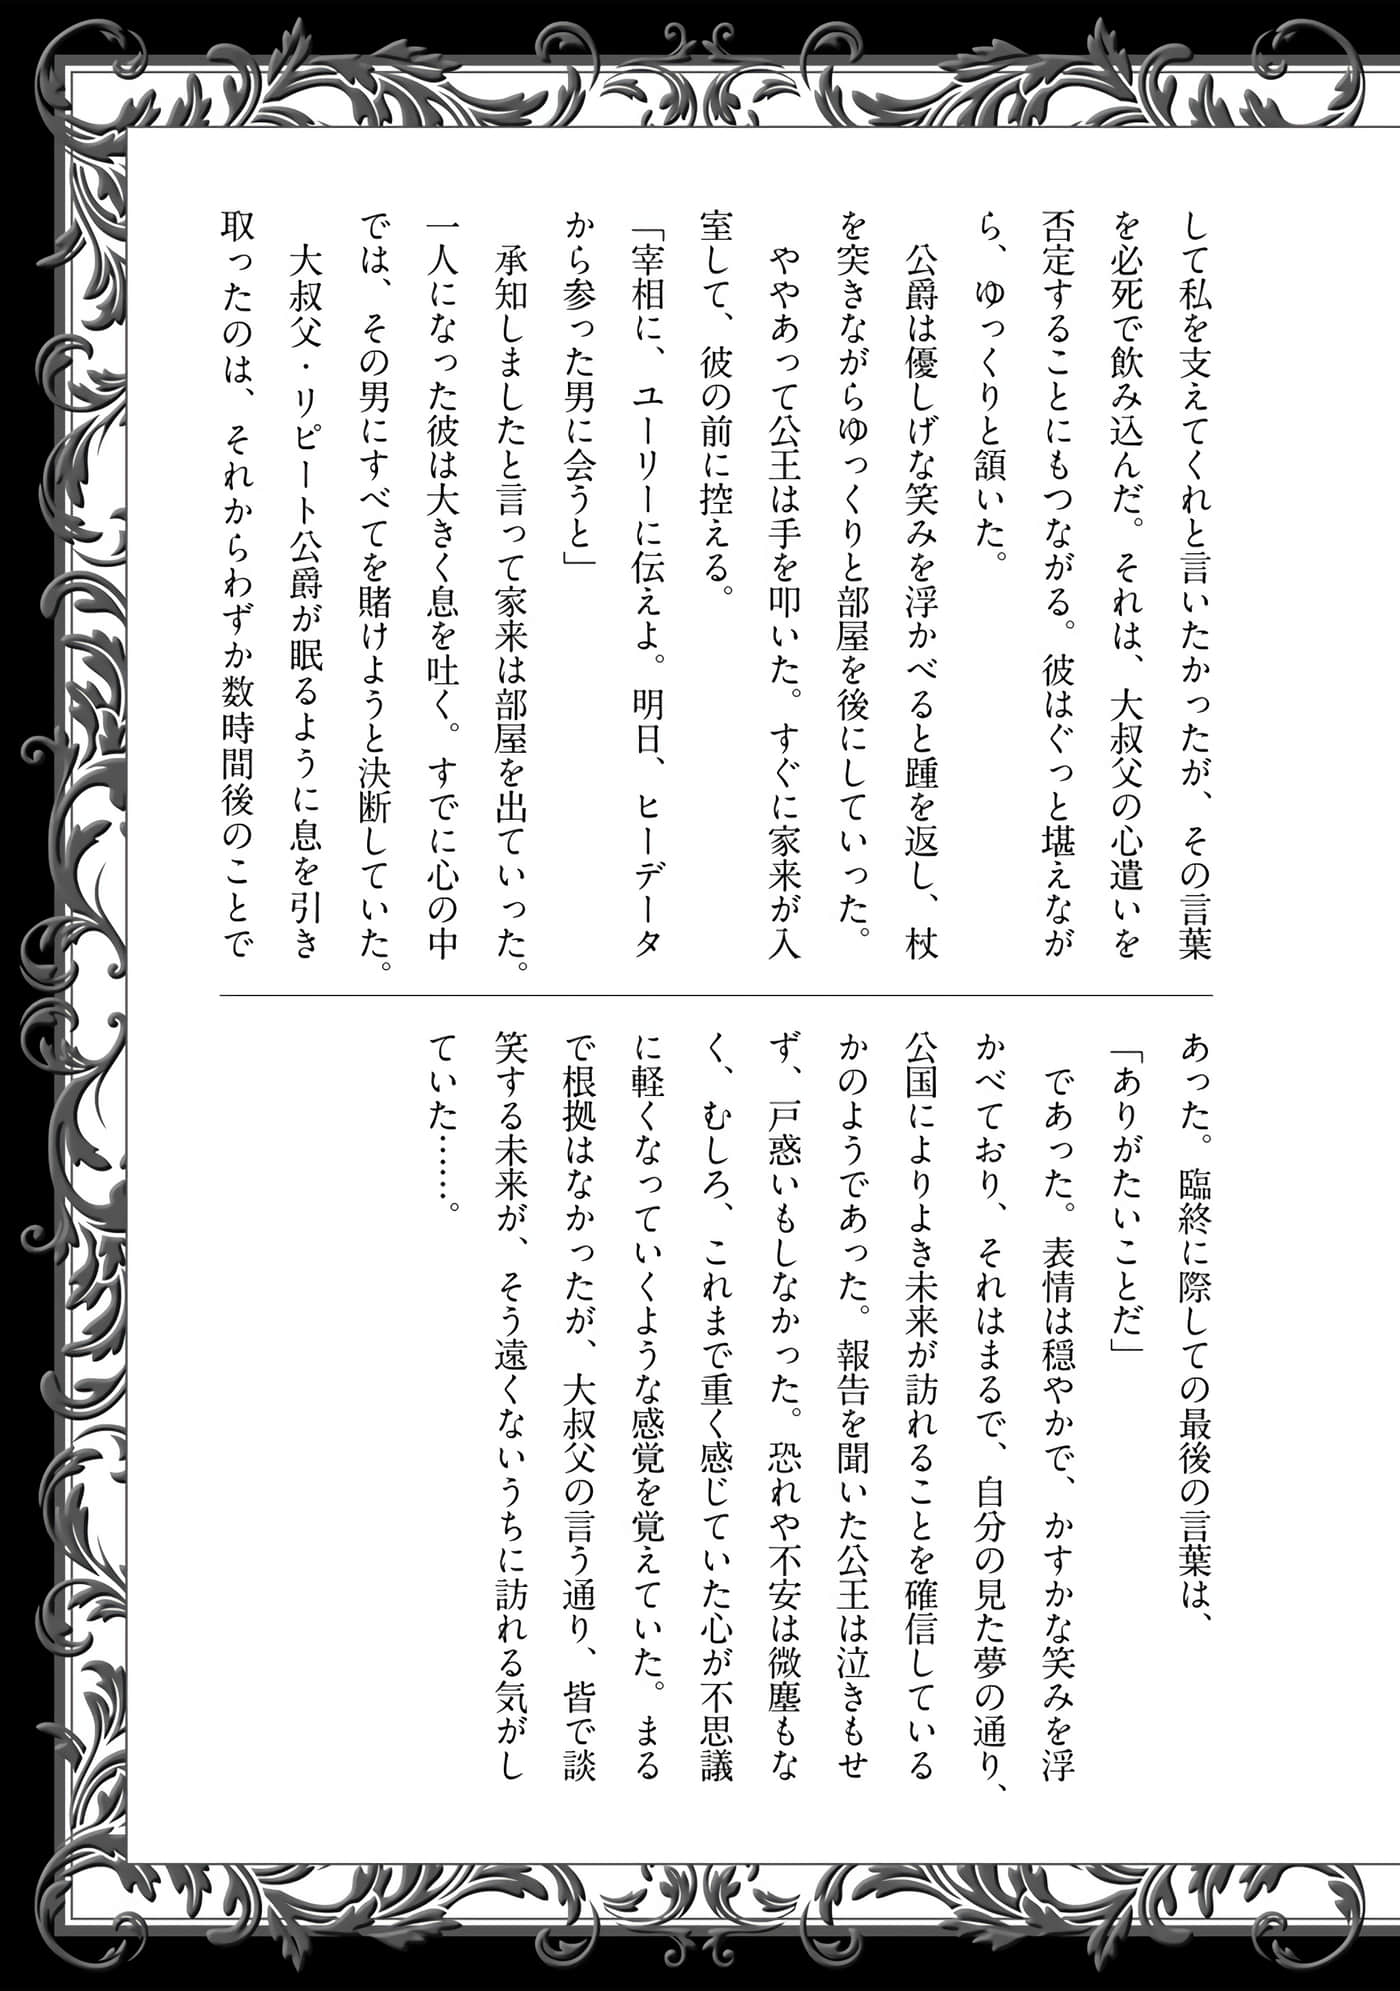 して私を支えてくれと言いたかったが、その言葉
を必死で飲み込んだ。それは、大叔父の心遣いを
否定することにもつながる。彼はぐっと堪えなが
ら、ゆっくりと頷いた。
公爵は優しげな笑みを浮かべると踵を返し、杖
を突きながらゆっくりと部屋を後にしていった。
ややあって公王は手を叩いた。すぐに家来が入
室して、彼の前に控える。
「宰相に、ユーリーに伝えよ。明日、ヒーデータ
から参った男に会うと」
承知しましたと言って家来は部屋を出ていった。
一人になった彼は大きく息を吐く。すでに心の中
では、その男にすべてを賭けようと決断していた。
大叔父・リピート公爵が眠るように息を引き
取ったのは、それからわずか数時間後のことで
あった。臨終に際しての最後の言葉は、
「ありがたいことだ」
であった。表情は穏やかで、かすかな笑みを浮
かべており、それはまるで、自分の見た夢の通り、
公国によりよき未来が訪れることを確信している
かのようであった。報告を聞いた公王は泣きもせ
ず、戸惑いもしなかった。恐れや不安は微塵もな
く、むしろ、これまで重く感じていた心が不思議
に軽くなっていくような感覚を覚えていた。まる
で根拠はなかったが、大叔父の言う通り、皆で談
笑する未来が、そう遠くないうちに訪れる気がし
ていた……。